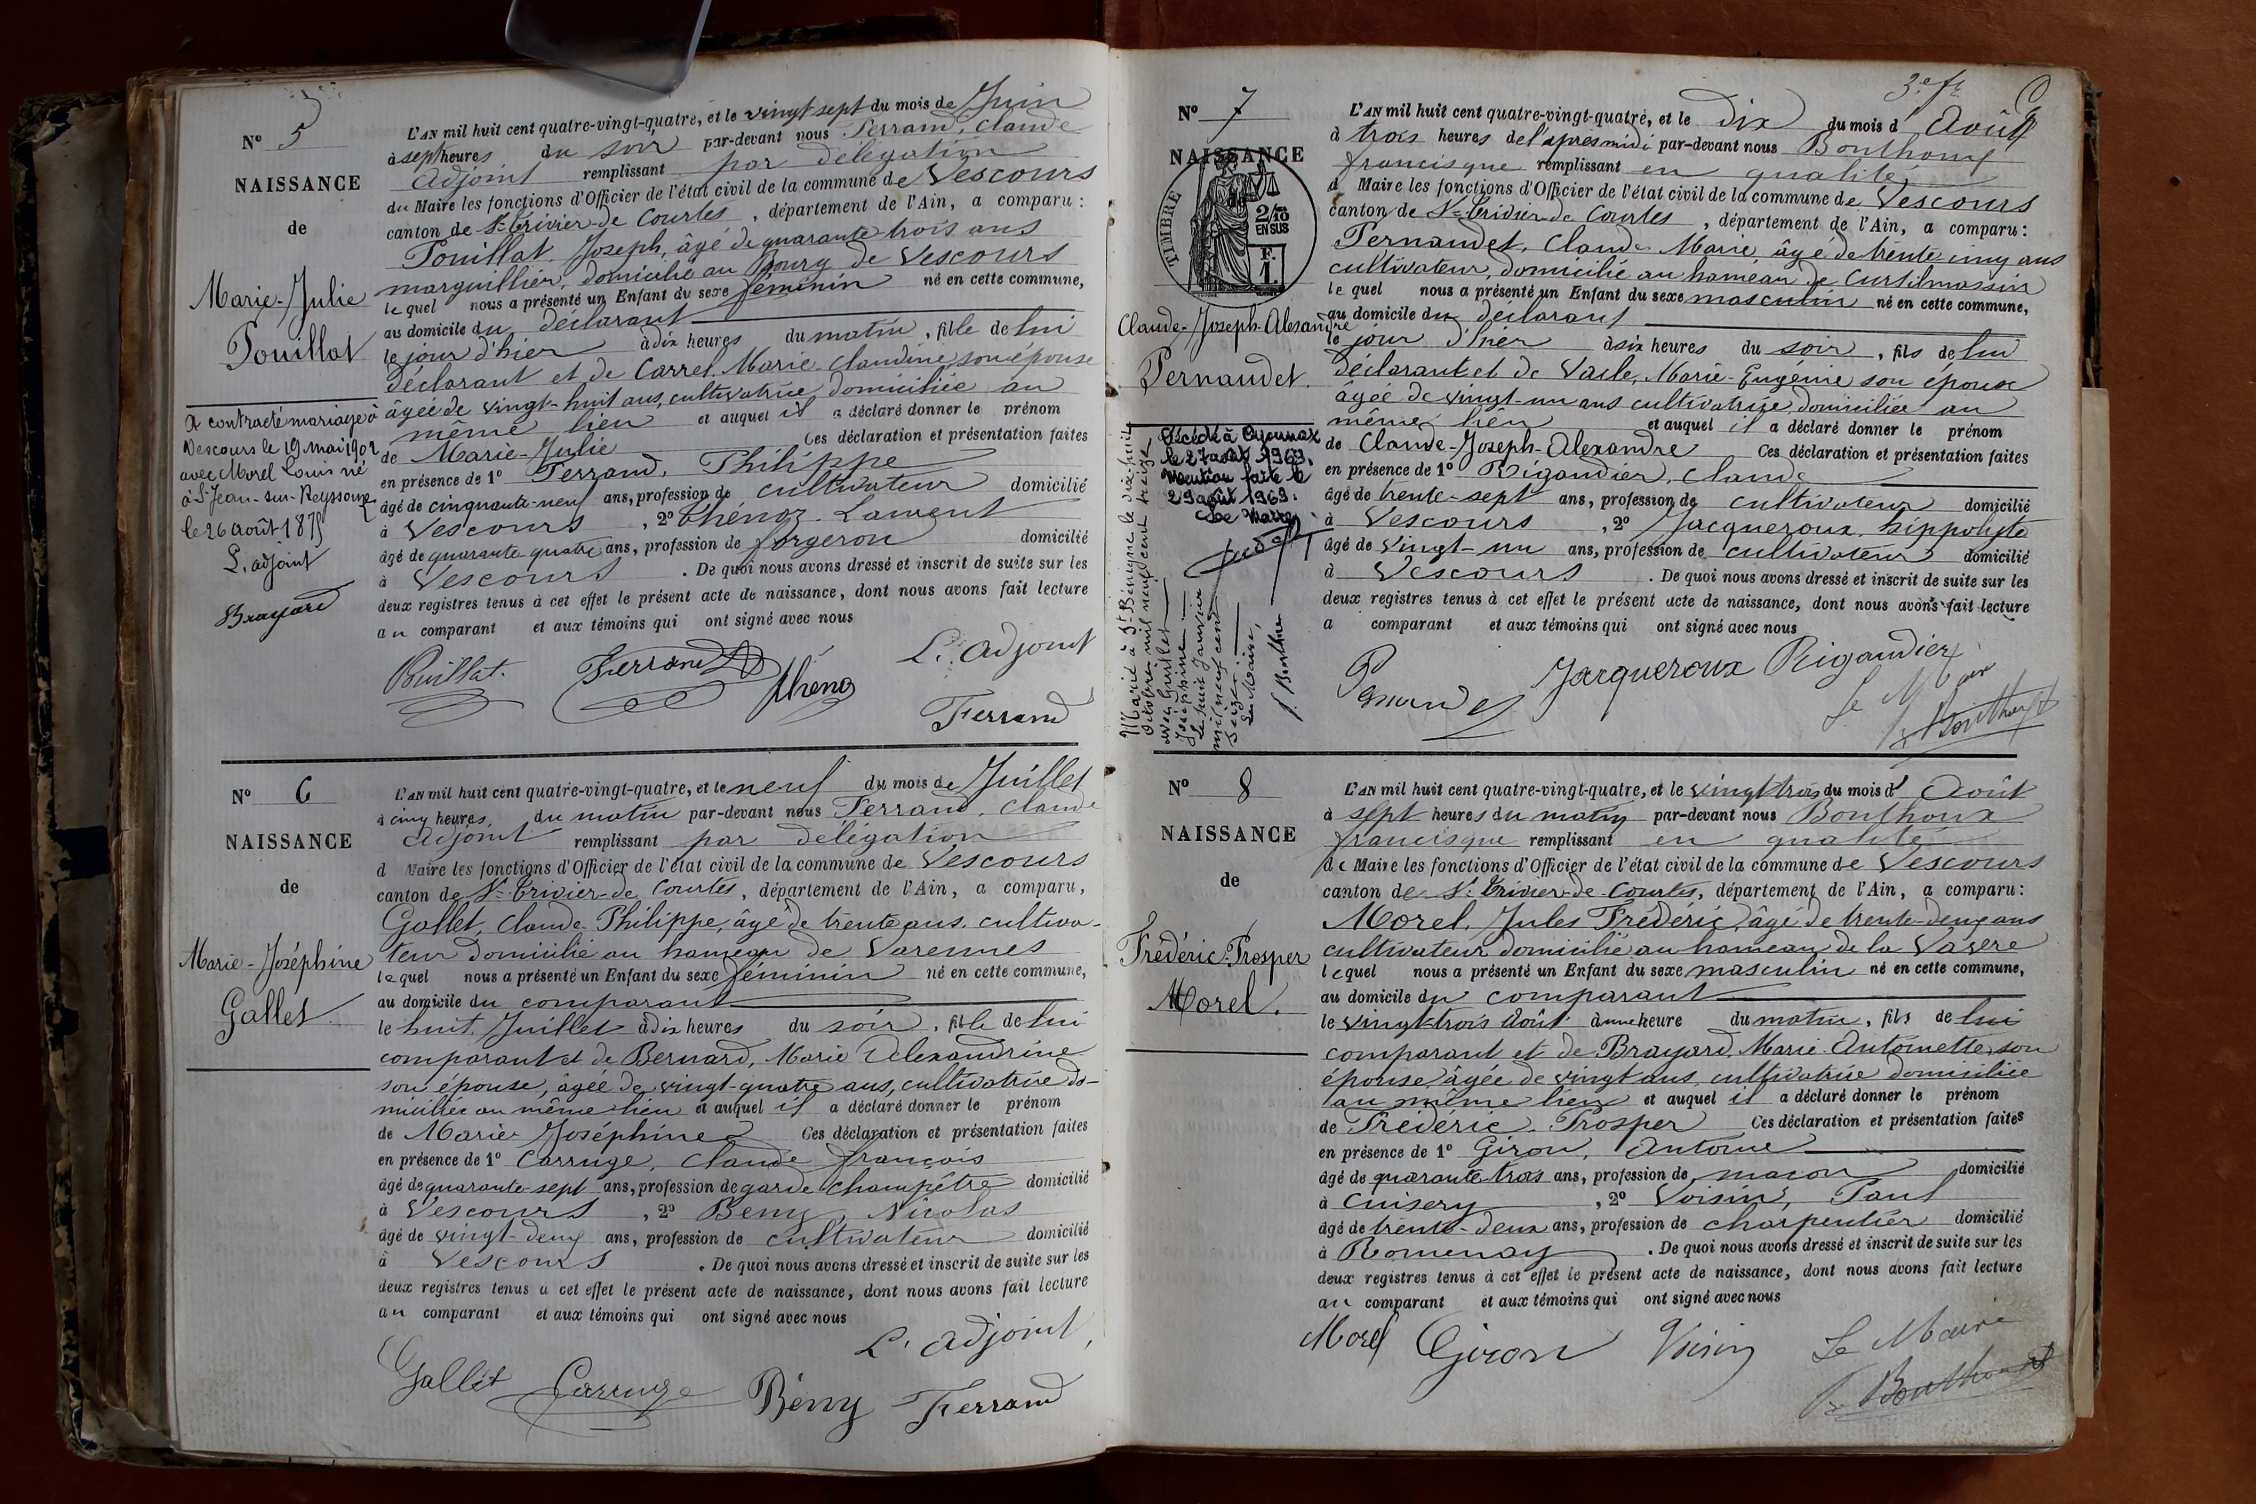 N° 5
NAISSANCE
de
Marie-Julie
Pouillat
A contracté mariage à
Vescours le 19 mai 1902
avec Morel Louis né
à St Jean-sur-Reyssouze
le 26 août 1875
L'adjoint
Brayard
L'AN mil huit cent quatre-vingt-quatre, et le vingt sept du mois de Juin
à sept heures du soir par-devant nous Ferrand, Claude
Adjoint remplissant par délégation
du Maire les fonctions d'Officier de l'état civil de la commune de Vescours
canton de St Trivier-de Courtes, département de l'Ain, a comparu:
Pouillat Joseph, âgé de quarante-trois ans
marguillier, domicilié au Bourg de Vescours
lequel nous a présenté un Enfant du sexe féminin né en cette commune,
au domicile du déclarant
le jour d'hier à dix heures du matin, fille de lui
déclarant et de Carrel Marie Claudine, son épouse
âgée de vingt-huit ans, cultivatrice domiciliée au
même lieu et auquel il a déclaré donner le prénom
de Marie-Julie Ces déclaration et présentation faites
en présence de 1° Ferrand, Philippe
âgé de cinquante-neuf ans, profession de cultivateur domicilié
à Vescours, 2° Thénoz Laurent
âgé de quarante quatre ans, profession de forgeron domicilié
à Vescours. De quoi nous avons dressé et inscrit de suite sur les
deux registres tenus à cet effet le présent acte de naissance, dont nous avons fait lecture
au comparant et aux témoins qui ont signé avec nous
L'adjoint
Pouillat Ferrand Thénoz
Ferrand
N° 6
NAISSANCE
de
Marie-Joséphine
Gallet
L'AN mil huit cent quatre-vingt-quatre, et le neuf du mois de Juillet
à cinq heures du matin par-devant nous Ferrand, Claude
adjoint remplissant par délégation
d Maire les fonctions d'Officier de l'état civil de la commune de Vescours
canton de St Trivier-de Courtes, département de l'Ain, a comparu,
Gallet, Claude Philippe, âgé de trente ans, cultiva-
teur domicilié au hameau de Varennes
lequel nous a présenté un Enfant du sexe féminin né en cette commune,
au domicile du comparant
le huit Juillet à dix heures du soir, fille de lui
comparant et de Bernard, Marie Alexandrine
son épouse, âgée de vingt-quatre ans, cultivatrice do-
miciliée au même lieu et auquel il a déclaré donner le prénom
de Marie-Joséphine Ces déclaration et présentation faites
en présence de 1° Carruge, Claude françois
âgé de quarante-sept ans, profession de garde champêtre domicilié
à Vescours, 2° Beny, Nicolas
âgé de vingt-deux ans, profession de cultivateur domicilié
à Vescours. De quoi nous avons dressé et inscrit de suite sur les
deux registres tenus à cet effet le présent acte de naissance, dont nous avons fait lecture
au comparant et aux témoins qui ont signé avec nous
L'adjoint,
Gallet Carruge Bény Ferrand
3e ft
N° 7
NAISSANCE
de
TIMBRE
2/10
EN SUS
F.
1
Claude-Joseph-Alexandre
Pernaudet.
Décédé à Oyonnax
le 27 août 1969.
Mention faite le
29 août 1969.
Le Maire
Marié à St Bénigne le dix huit
Octobre mil neuf cent treize
avec Guillet
Joséphine
Le huit Janvier
mil neuf cent
Seize
Le Maire,
J. Berthud
L'AN mil huit cent quatre-vingt-quatre, et le dix du mois d'Août
à trois heures de l'après midi par-devant nous Bouthoux
francisque remplissant en qualité
d Maire les fonctions d'Officier de l'état civil de la commune de Vescours
canton de St Trivier-de Courtes, département de l'Ain, a comparu:
Pernaudet, Claude Marie, âgé de trente cinq ans
cultivateur, domicilié au hameau de Curtilmassin
lequel nous a présenté un Enfant du sexe masculin né en cette commune,
au domicile du déclarant
le jour d'hier à six heures du soir, fils de lui
déclarant et de Vaile, Marie-Eugénie son épouse
âgée de vingt-un ans cultivatrice, domiciliée au
même lieu et auquel il a déclaré donner le prénom
de Claude-Joseph-Alexandre Ces déclaration et présentation faites
en présence de 1° Rigaudier, Claude
âgé de trente-sept ans, profession de cultivateur domicilié
à Vescours, 2° Jacqueroux, hippolyte
âgé de vingt-un ans, profession de cultivateur domicilié
à Vescours. De quoi nous avons dressé et inscrit de suite sur les
deux registres tenus à cet effet le présent acte de naissance, dont nous avons fait lecture
a comparant et aux témoins qui ont signé avec nous
Pernaudet Jacqueroux Rigaudier
Le Maire
Bouthoux
N° 8
NAISSANCE
de
Frédéric-Prosper
Morel.
L'AN mil huit cent quatre-vingt-quatre, et le vingt trois du mois d'Août
à sept heures du matin par-devant nous Bouthoux
francisque remplissant en qualité
de Maire les fonctions d'Officier de l'état civil de la commune de Vescours
canton de St Trivier-de-Courtes, département de l'Ain, a comparu:
Morel, Jules Frédéric, âgé de trente-deux ans
cultivateur domicilié au hameau de la Vavere
lequel nous a présenté un Enfant du sexe masculin né en cette commune,
au domicile du comparant
le vingt-trois Août à une heure du matin, fils de lui
comparant et de Brayard, Marie Antoinette, son
épouse, âgée de vingt ans, cultivatrice domiciliée
au même lieu et auquel il a déclaré donner le prénom
de Frédéric Prosper Ces déclaration et présentation faites
en présence de 1° Giron, Antoine
âgé de quarante-trois ans, profession de maçon domicilié
à Cuisery, 2° Voisin, Paul
âgé de trente-deux ans, profession de charpentier domicilié
à Romenay. De quoi nous avons dressé et inscrit de suite sur les
deux registres tenus à cet effet le présent acte de naissance, dont nous avons fait lecture
au comparant et aux témoins qui ont signé avec nous
Morel Giron Voisin Le Maire
Bouthoux